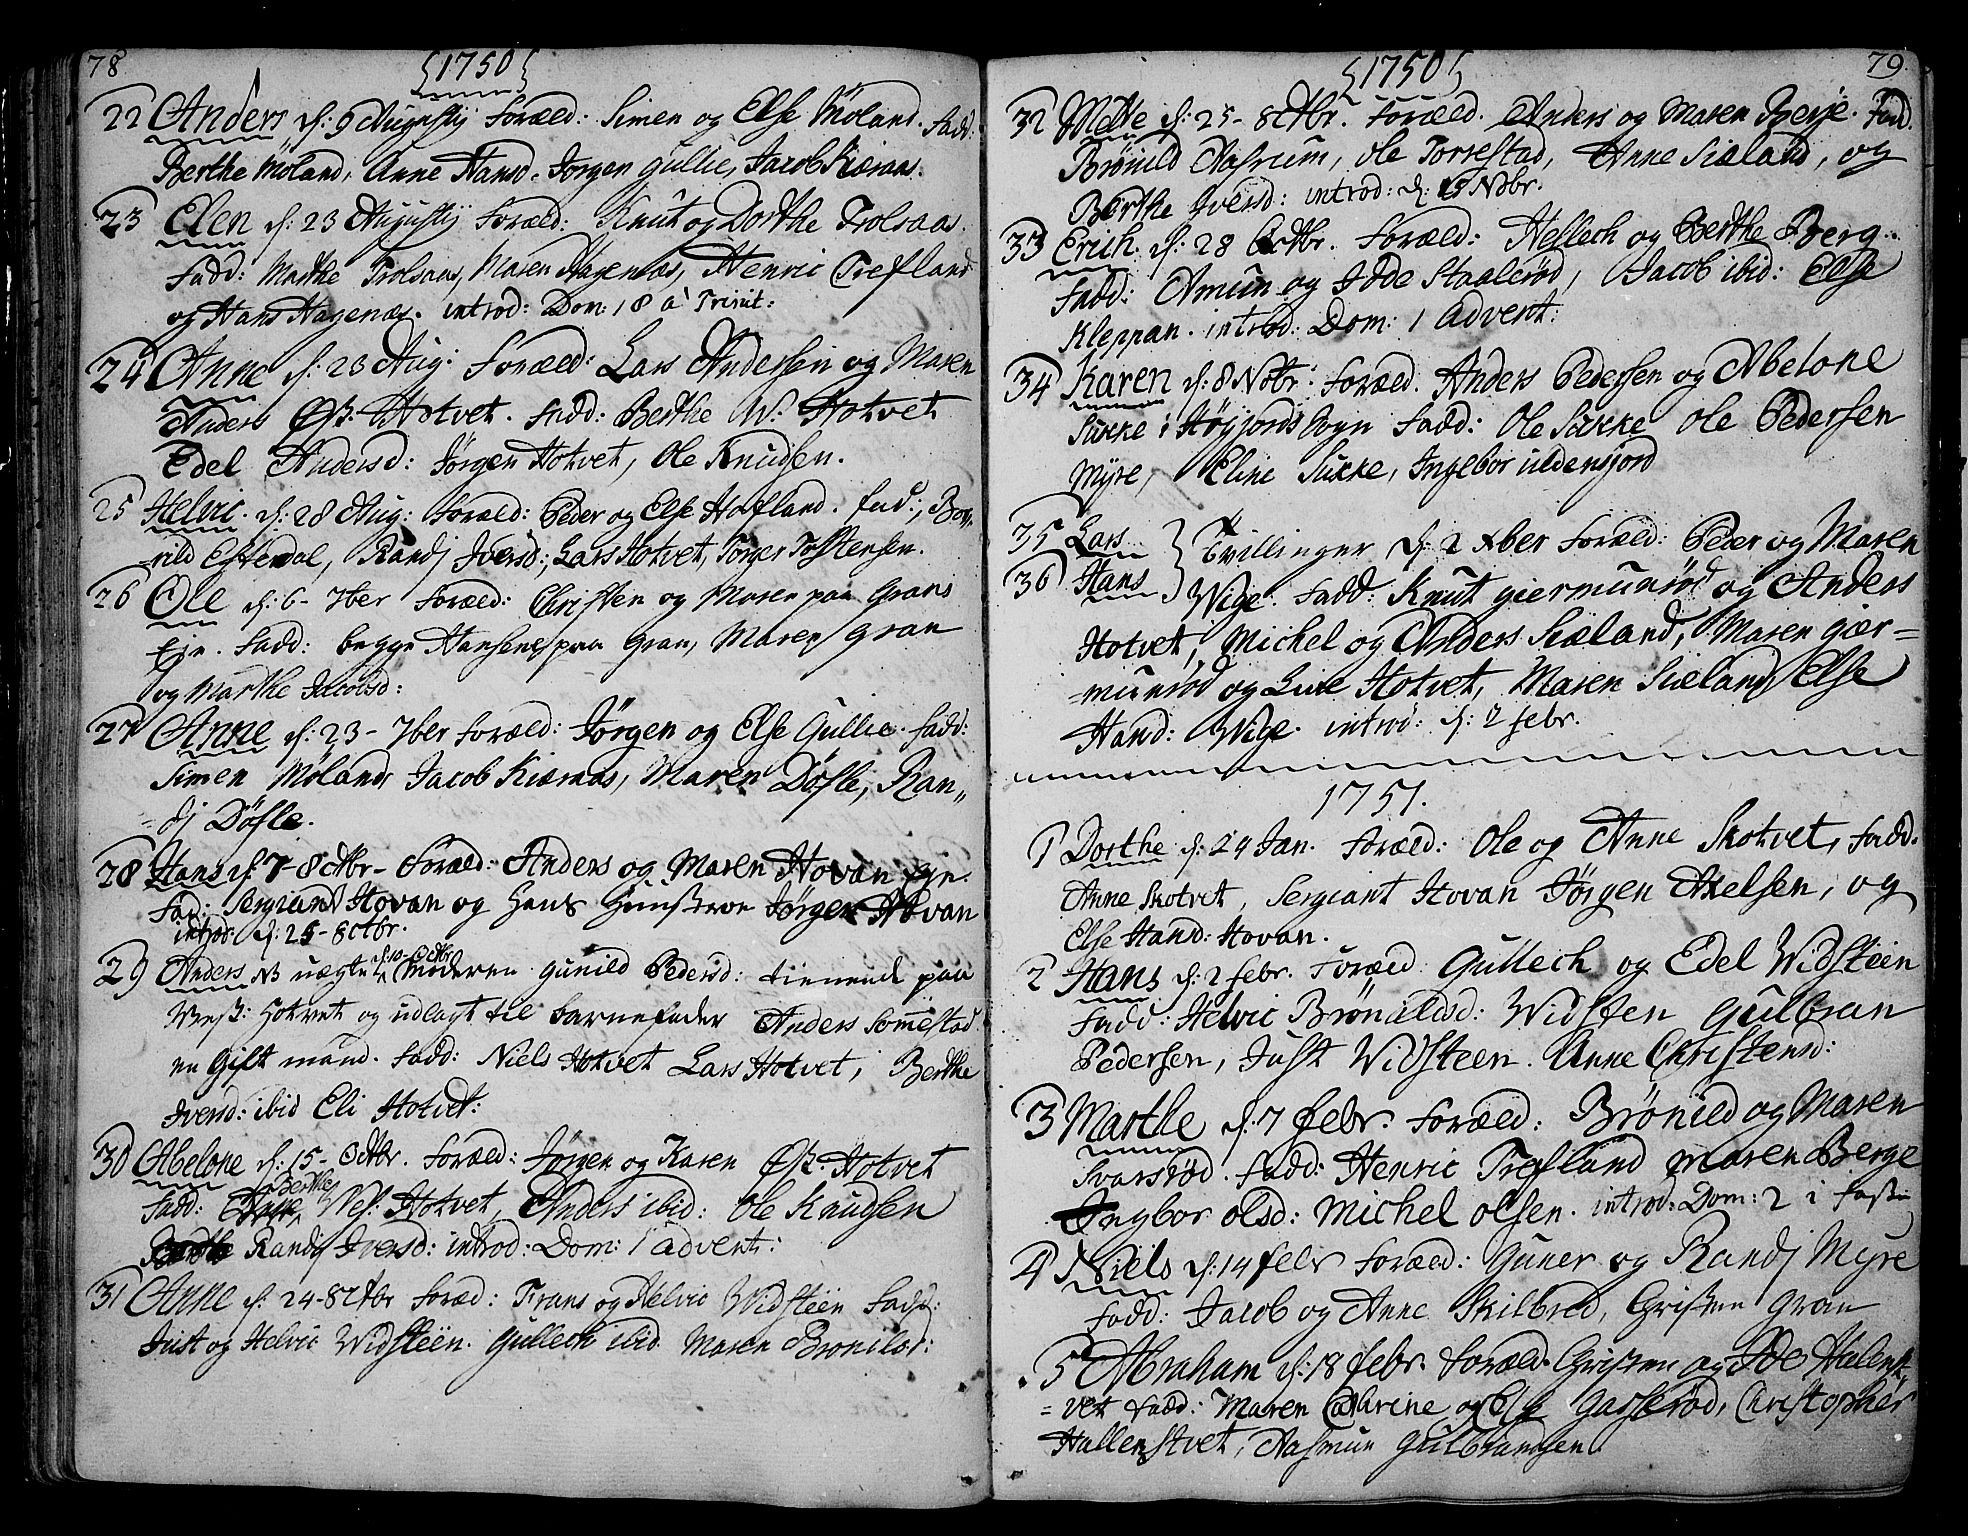 78
1750
22 Anders d: 9 Augustij Foræld: Simen og Else Möland. Fadd.
Berthe Möland, Anne Hansd. Jorgen Gullie, Jacob Kiæraas.
23 Elen d: 23 Augustij Foræld: Knut og Dorthe Trolsaas.
Fadd: Marthe Trolsaas, Maren Hagenæs, Henric Trefland
og Hans Hagenæs. introd: Dom: 18 a Trinit:
24 Anne d: 23 Aug: Foræld: Lars Andersen og Maren
Anders Øst: Hotvet. Fadd: Berthe W: Hotvet
Edel Andersd: Jørgen Hotvet, Ole Knudsen.
25 Helvic. d: 28 Aug: Foræld: Peder og Else Hafland. fad:, Brö,,
nild Efterdal, Randj Iversd:, Lars Hotvet, Torger Tostensen.
26 Ole d: 6-7ber Foræld: Christen og Maren paa Grans
Eje. Fadd: begge Hansene paa Gran, Maren Gran
og Marthe Jacobsd:
27 Anne d: 23-7ber Foræld: Jørgen og Else Gullie. Fadd:
Simen Möland, Jacob Kiæraas, Maren Döfle, Ran,,
=dj Döfle.
28 Hans d: 7-8ctbr- Foræld: Anders og Maren Hovan eje.
Fad: Sergiant Hovan og Hans Jørgen Hovan
introd: d: 25-8ctbr.
29 Anders NB uægte d: 10-Octbr Moderen Gunild Pedersd: tienende paa
West: Hotvet og udlagt til Barnefader Anders Sommestad
en Gift mand. Fadd: Niels Hotvet Lars Hotvet, Berthe
Iversd: ibid Eli Hotvet:
30 Abelone d: 15-Octbr. Foræld: Jørgen og Karen Øst: Hotvet
Fadd: Berthe Ves: Hotvet, Anders ibid: Ole Knudsen
Randj Iversd: introd: Dom: 1 advent:
31 Anne d: 24-8ctbr Foræd: Frans og Helvic Widsteen Fadd:
Just og Helvic Widsteen. Gullech ibid. Maren Bronilds:
79
1750
32 Mette d: 25-8ctbr. Foræld. Anders og Maren Berje. Fad.
Brönild Aasrum, Ole Torrestad, Anne Siæland, og
Berthe Iversd: introd: d: 15 Nobr.
33 Erich d: 28 Octbr. Foræld: Hellech og Berthe Berg.
Fadd: Amun og Idde Staalerød, Jacob ibid: Else
Kleppan. introd: Dom: 1 Advent:
34 Karen d: 8 Nobr: Foræld. Anders Pedersen og Abelone
Sukke i Høyjords Sogn Fadd: Ole Sukke Ole Pedersen
Myre, Eline Sukke, Ingebor uldensjord
35 Lars Tvillinger d: 2 xber Foræld: Peder og Maren
36 Hans Wige. Fadd: Knut giermunrød og Anders
Hotvet, Michel og Anders Siæland, Maren giær=
=munrød og Live Hotvet, Maren Siæland, Else
Hansd: Wige. introd: d: 2 febr.
1751.
1 Dorthe d: 24 Jan. Foræld: Ole og Anne Skotvet, Fadd.
Anne Skotvet, Sergiant Hovan Jørgen Axelsen, og
Else Hansd: Hovan.
2 Hans d: 2 febr. Foræld Gullech og Edel Widsteen
Fadd: Helvic Brönildsd: Widsten Gulbran
Pedersen, Just Widsteen. Anne Christensd:
3 Marthe d: 7 febr. Foræld: Brönild og Maren
Svarsrød. Fadd: Henric Trefland Maren Berge
Ingbor olsd: Michel olsen. introd: Dom: 2 i Faste
4 Niels d: 14 febr Foræld: Guner og Randj Myre
Fadd: Jacob og Anne Skilbred, Cristen Gran
5 Abraham d: 18 febr. Foræld. Cristen og Ide Hallenst=
=vet Fadd: Maren Cathrine og Else Gasserød, Christopher
Hallenstvet, Aasmun Gulbransen.